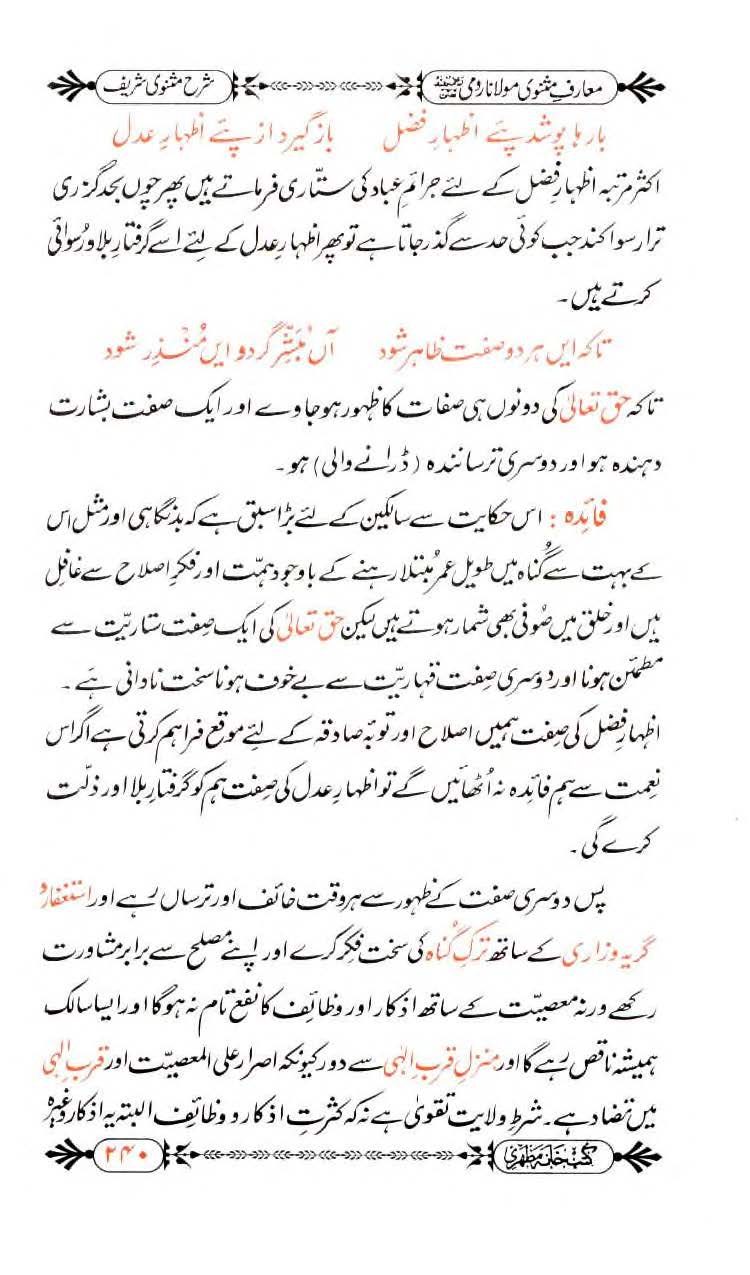 معارفِ مثنوی مولانا رومی
شرح مثنوی شریف
بار ہا پوشد پئے اظہارِ فضل باز گیرد از پئے اظہارِ عدل
اکثر مرتبہ اظہارِ فضل کے لئے جرائمِ عباد کی ستّاری فرماتے ہیں پھر چوں بحد گزری
ترا رسوا کند جب کوئی حد سے گذر جاتا ہے تو پھر اظہارِ عدل کے لئے اسے گرفتارِ بلا و رُسوائی
کرتے ہیں۔
تا کہ ایں ہر دو صفت ظاہر شود آں مُبَشِّر گردد و ایں مُنذِر شود
تا کہ حق تعالیٰ کی دونوں ہی صفات کا ظہور ہو جاوے اور ایک صفت بشارت
دہندہ ہو اور دوسری ترسانندہ (ڈرانے والی) ہو۔
فائدہ : اس حکایت سے سالکین کے لئے بڑا سبق ہے کہ بدنگاہی اور مثل اس
کے بہت سے گُناہ میں طویل عمر مُبتلا رہنے کے باوجود ہمّت اور فکرِ اصلاح سے غافل
ہیں اور خلق میں صُوفی بھی شمار ہوتے ہیں لیکن حق تعالیٰ کی ایک صِفت ستاریّت سے
مطمئن ہونا اور دوسری صِفت قہاریّت سے بے خوف ہونا سخت نادانی ہے۔
اظہارِ فضل کی صِفت ہمیں اصلاح اور توبۂ صادقہ کے لئے موقع فراہم کرتی ہے اگر اس
نِعمت سے ہم فائدہ نہ اُٹھائیں گے تو اظہارِ عدل کی صِفت ہم کو گرفتارِ بلا اور ذلّت
کرے گی۔
پس دوسری صفت کے ظہور سے ہر وقت خائف اور ترساں رہے اور استغفار و
گریہ وزاری کے ساتھ ترکِ گُناہ کی سخت فکر کرے اور اپنے مصلح سے برابر مشاورت
رکھے ورنہ معصیّت کے ساتھ اذکار اور وظائف کا نفع تام نہ ہوگا اور ایسا سالک
ہمیشہ ناقص رہے گا اور منزلِ قربِ الٰہی سے دور کیونکہ اصرار علی المعصیّت اور قربِ الٰہی
میں تضاد ہے۔ شرطِ ولایت تقویٰ ہے نہ کہ کثرتِ اذکار و وظائف البتہ یہ اذکار وغیرہ
کتب خانہ مظہری
۲۴۰